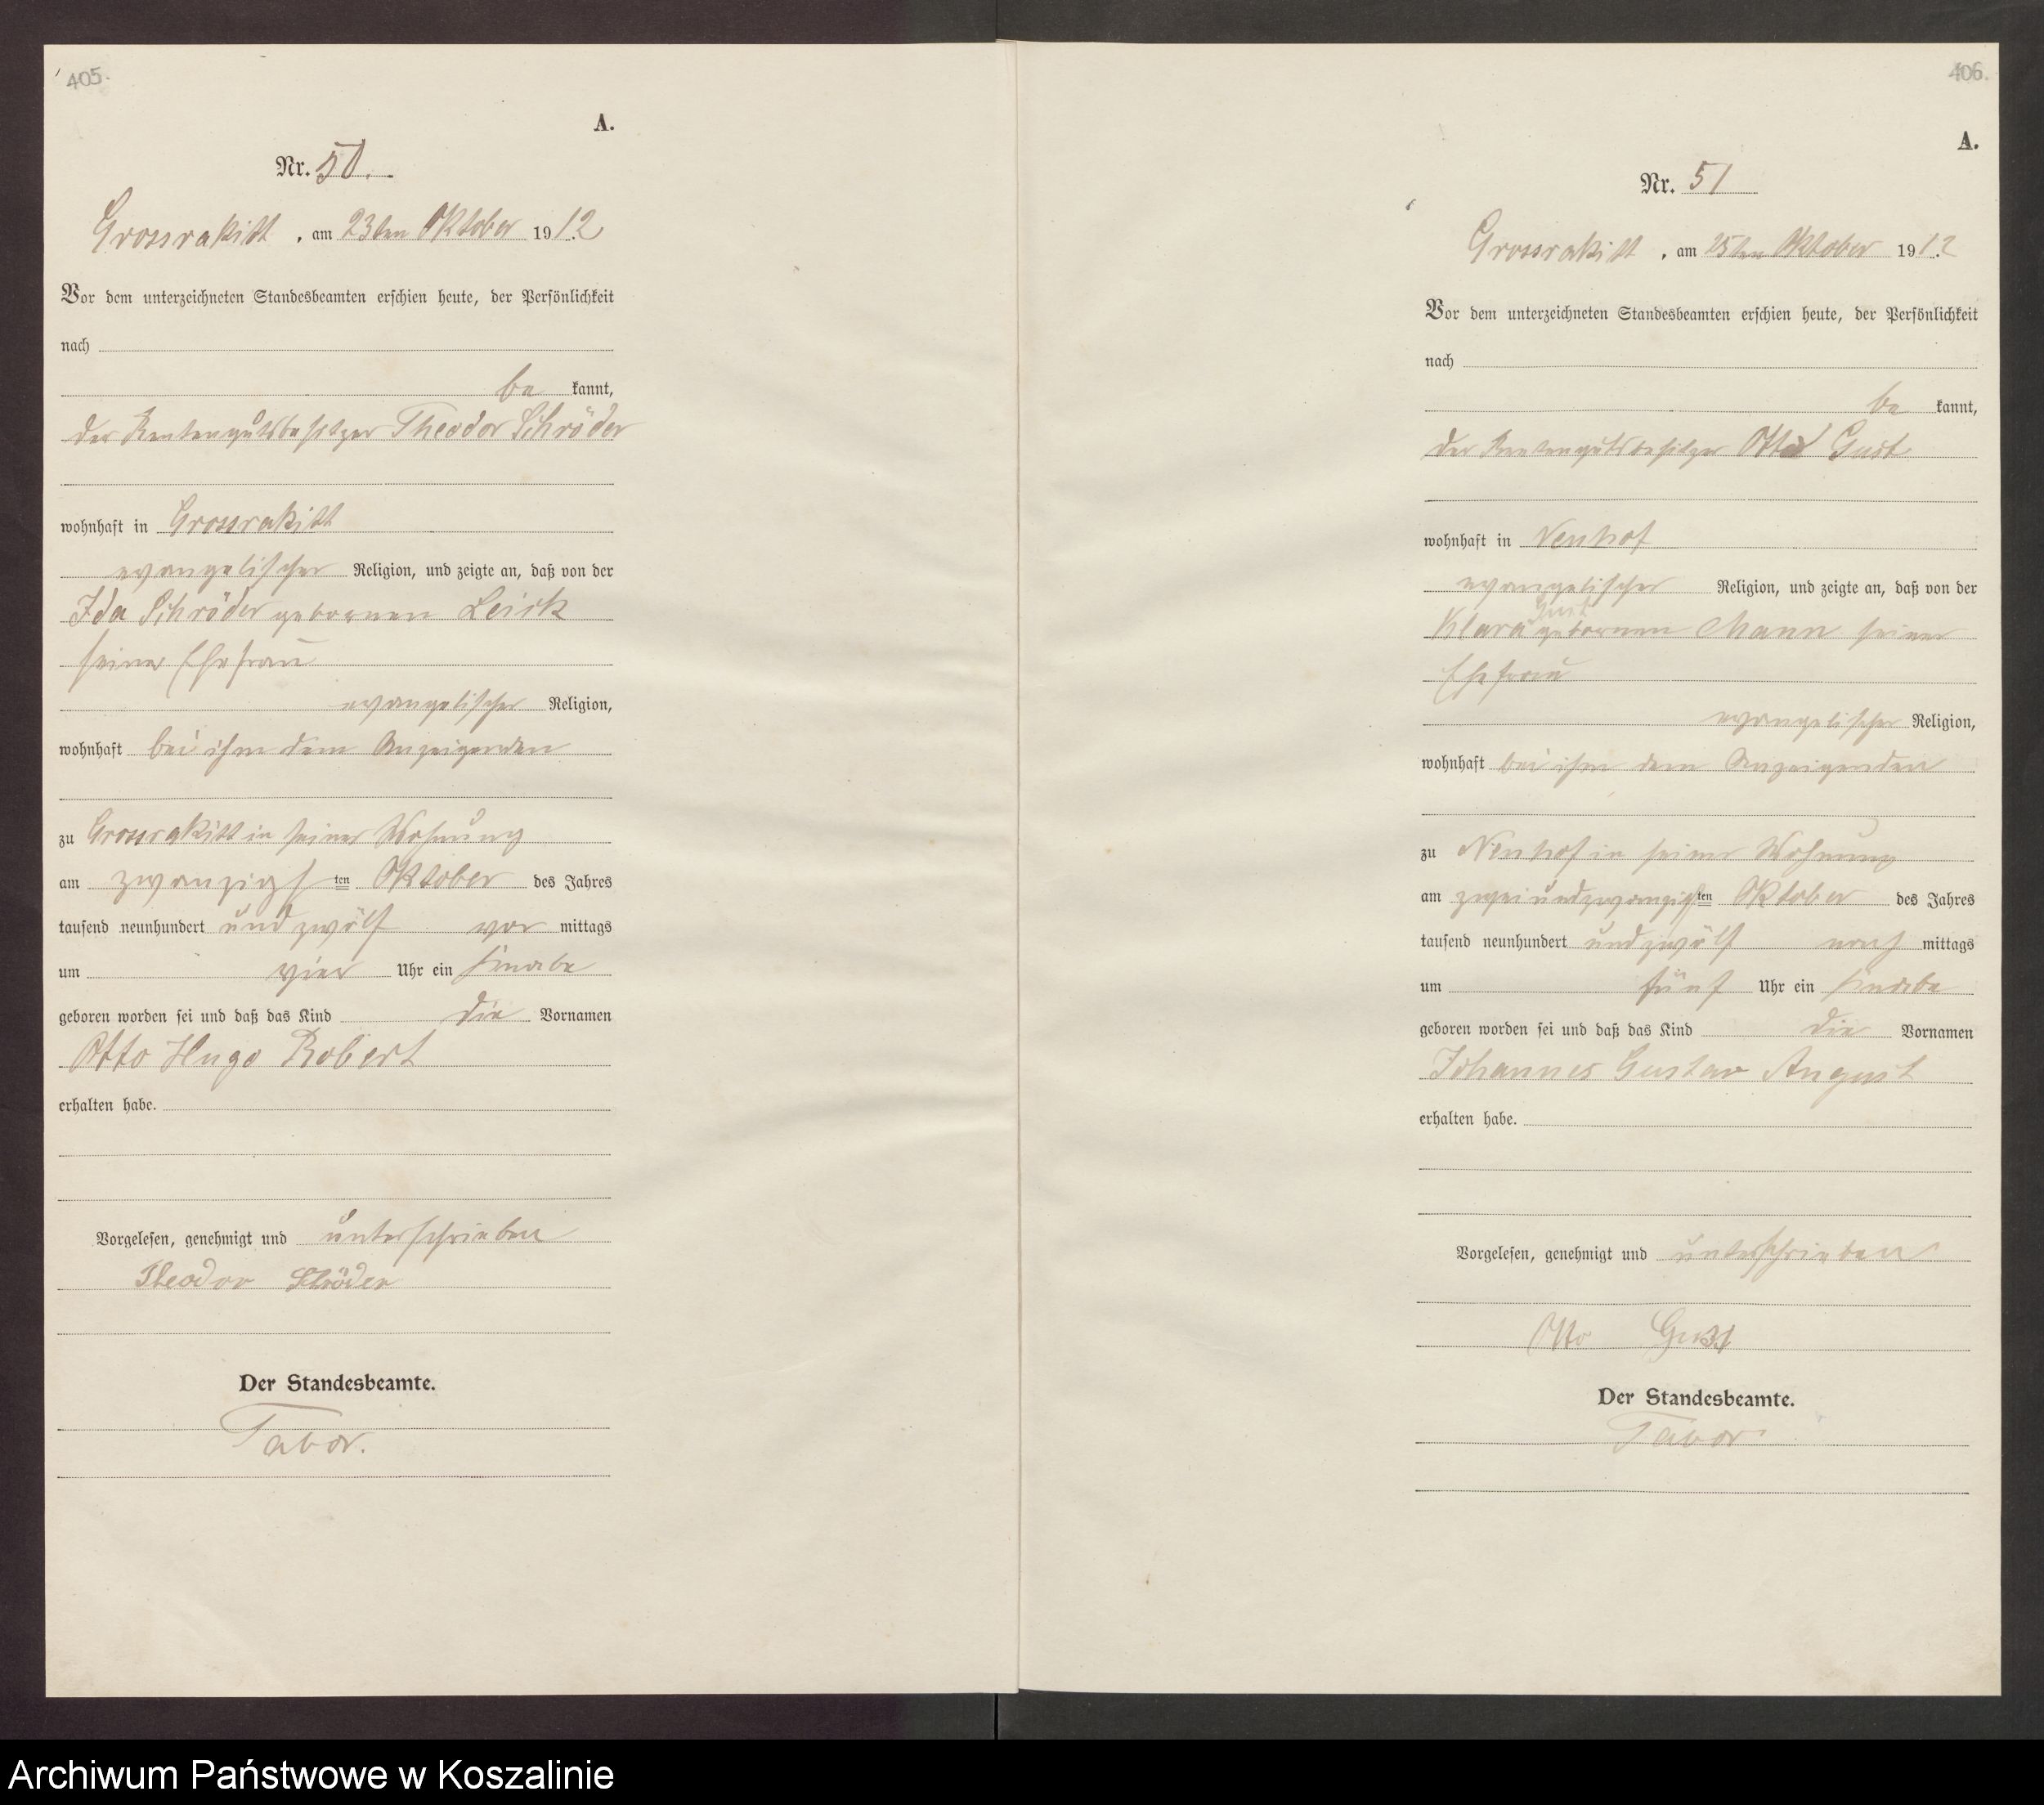 405.
A.
Nr. 50.
Grossrakitt, am 23ten Oktober 1912
Vor dem unterzeichneten Standesbeamten erschien heute, der Persönlichkeit
nach
be kannt,
der Rentengutsbesitzer Theodor Schröder
wohnhaft in Grossrakitt
evangelischer Religion, und zeigte an, daß von der
Ida Schröder gebornen Leick
seiner Ehefrau
evangelischer Religion,
wohnhaft bei ihm dem Anzeigenden
zu Grossrakitt in seiner Wohnung
am zwanzigsten Oktober des Jahres
tausend neunhundert und zwölf vor mittags
um vier Uhr ein Knabe
geboren worden sei und daß das Kind die Vornamen
Otto Hugo Robert
erhalten habe.
Vorgelesen, genehmigt und unterschrieben
Theodor Schröder
Der Standesbeamte.
Tabor.
406.
A.
Nr. 51
Grossrakitt, am 25ten Oktober 1912
Vor dem unterzeichneten Standesbeamten erschien heute, der Persönlichkeit
nach
be kannt,
der Rentengutsbesitzer Otto Gust
wohnhaft in Neuhof
evangelischer Religion, und zeigte an, daß von der
Klara Gust gebornen Mann seiner
Ehefrau
evangelischer Religion,
wohnhaft bei ihm dem Anzeigenden
zu Neuhof in seiner Wohnung
am zweiundzwanzigsten Oktober des Jahres
tausend neunhundert und zwölf nach mittags
um fünf Uhr ein Knabe
geboren worden sei und daß das Kind die Vornamen
Johannes Gustav August
erhalten habe.
Vorgelesen, genehmigt und unterschrieben
Otto Gust
Der Standesbeamte.
Tabor
Archiwum Państwowe w Koszalinie